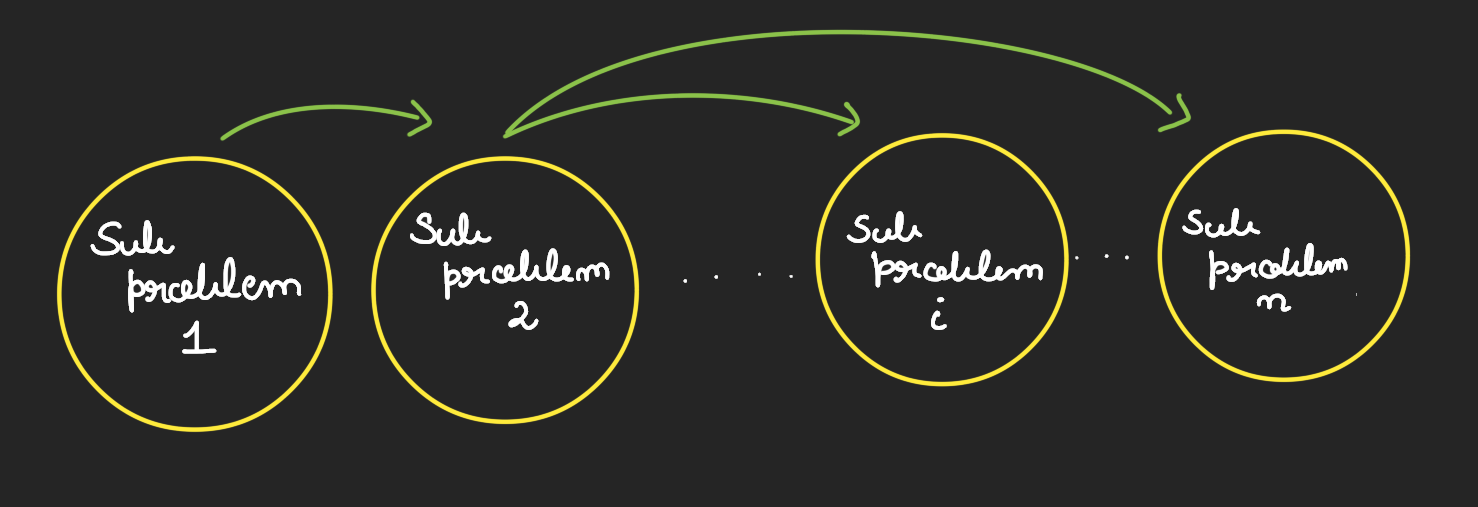 Sub
problem
1
Sub
problem
2
. . . .
Sub
problem
i
. . . .
Sub
problem
n